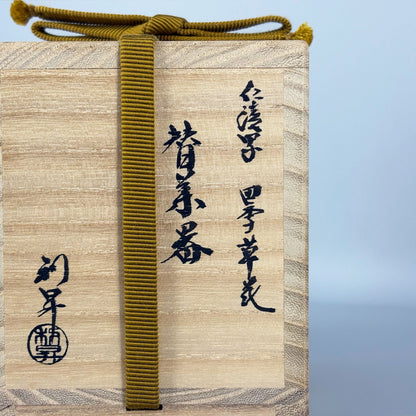 仁清写 四季草花
替茶器
利昇